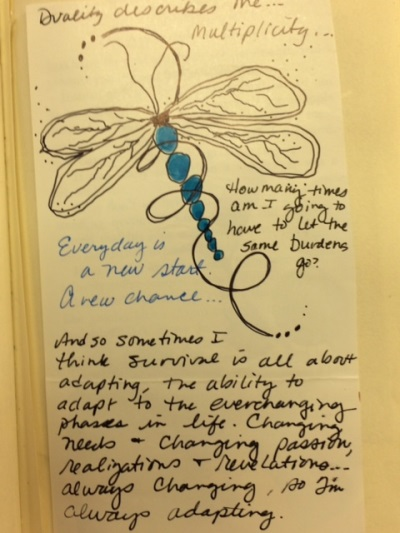 Duality describes the...
Multiplicity...
How many times
am I going to
have to let the
same burdens
go?
Everyday is
a new start.
A new chance...
And so sometimes I
think survival is all about
adapting, the ability to
adapt to the everchanging
phases in life. Changing
needs + Changing passion,
realizations + revelations...
always changing, so I'm
always adapting.